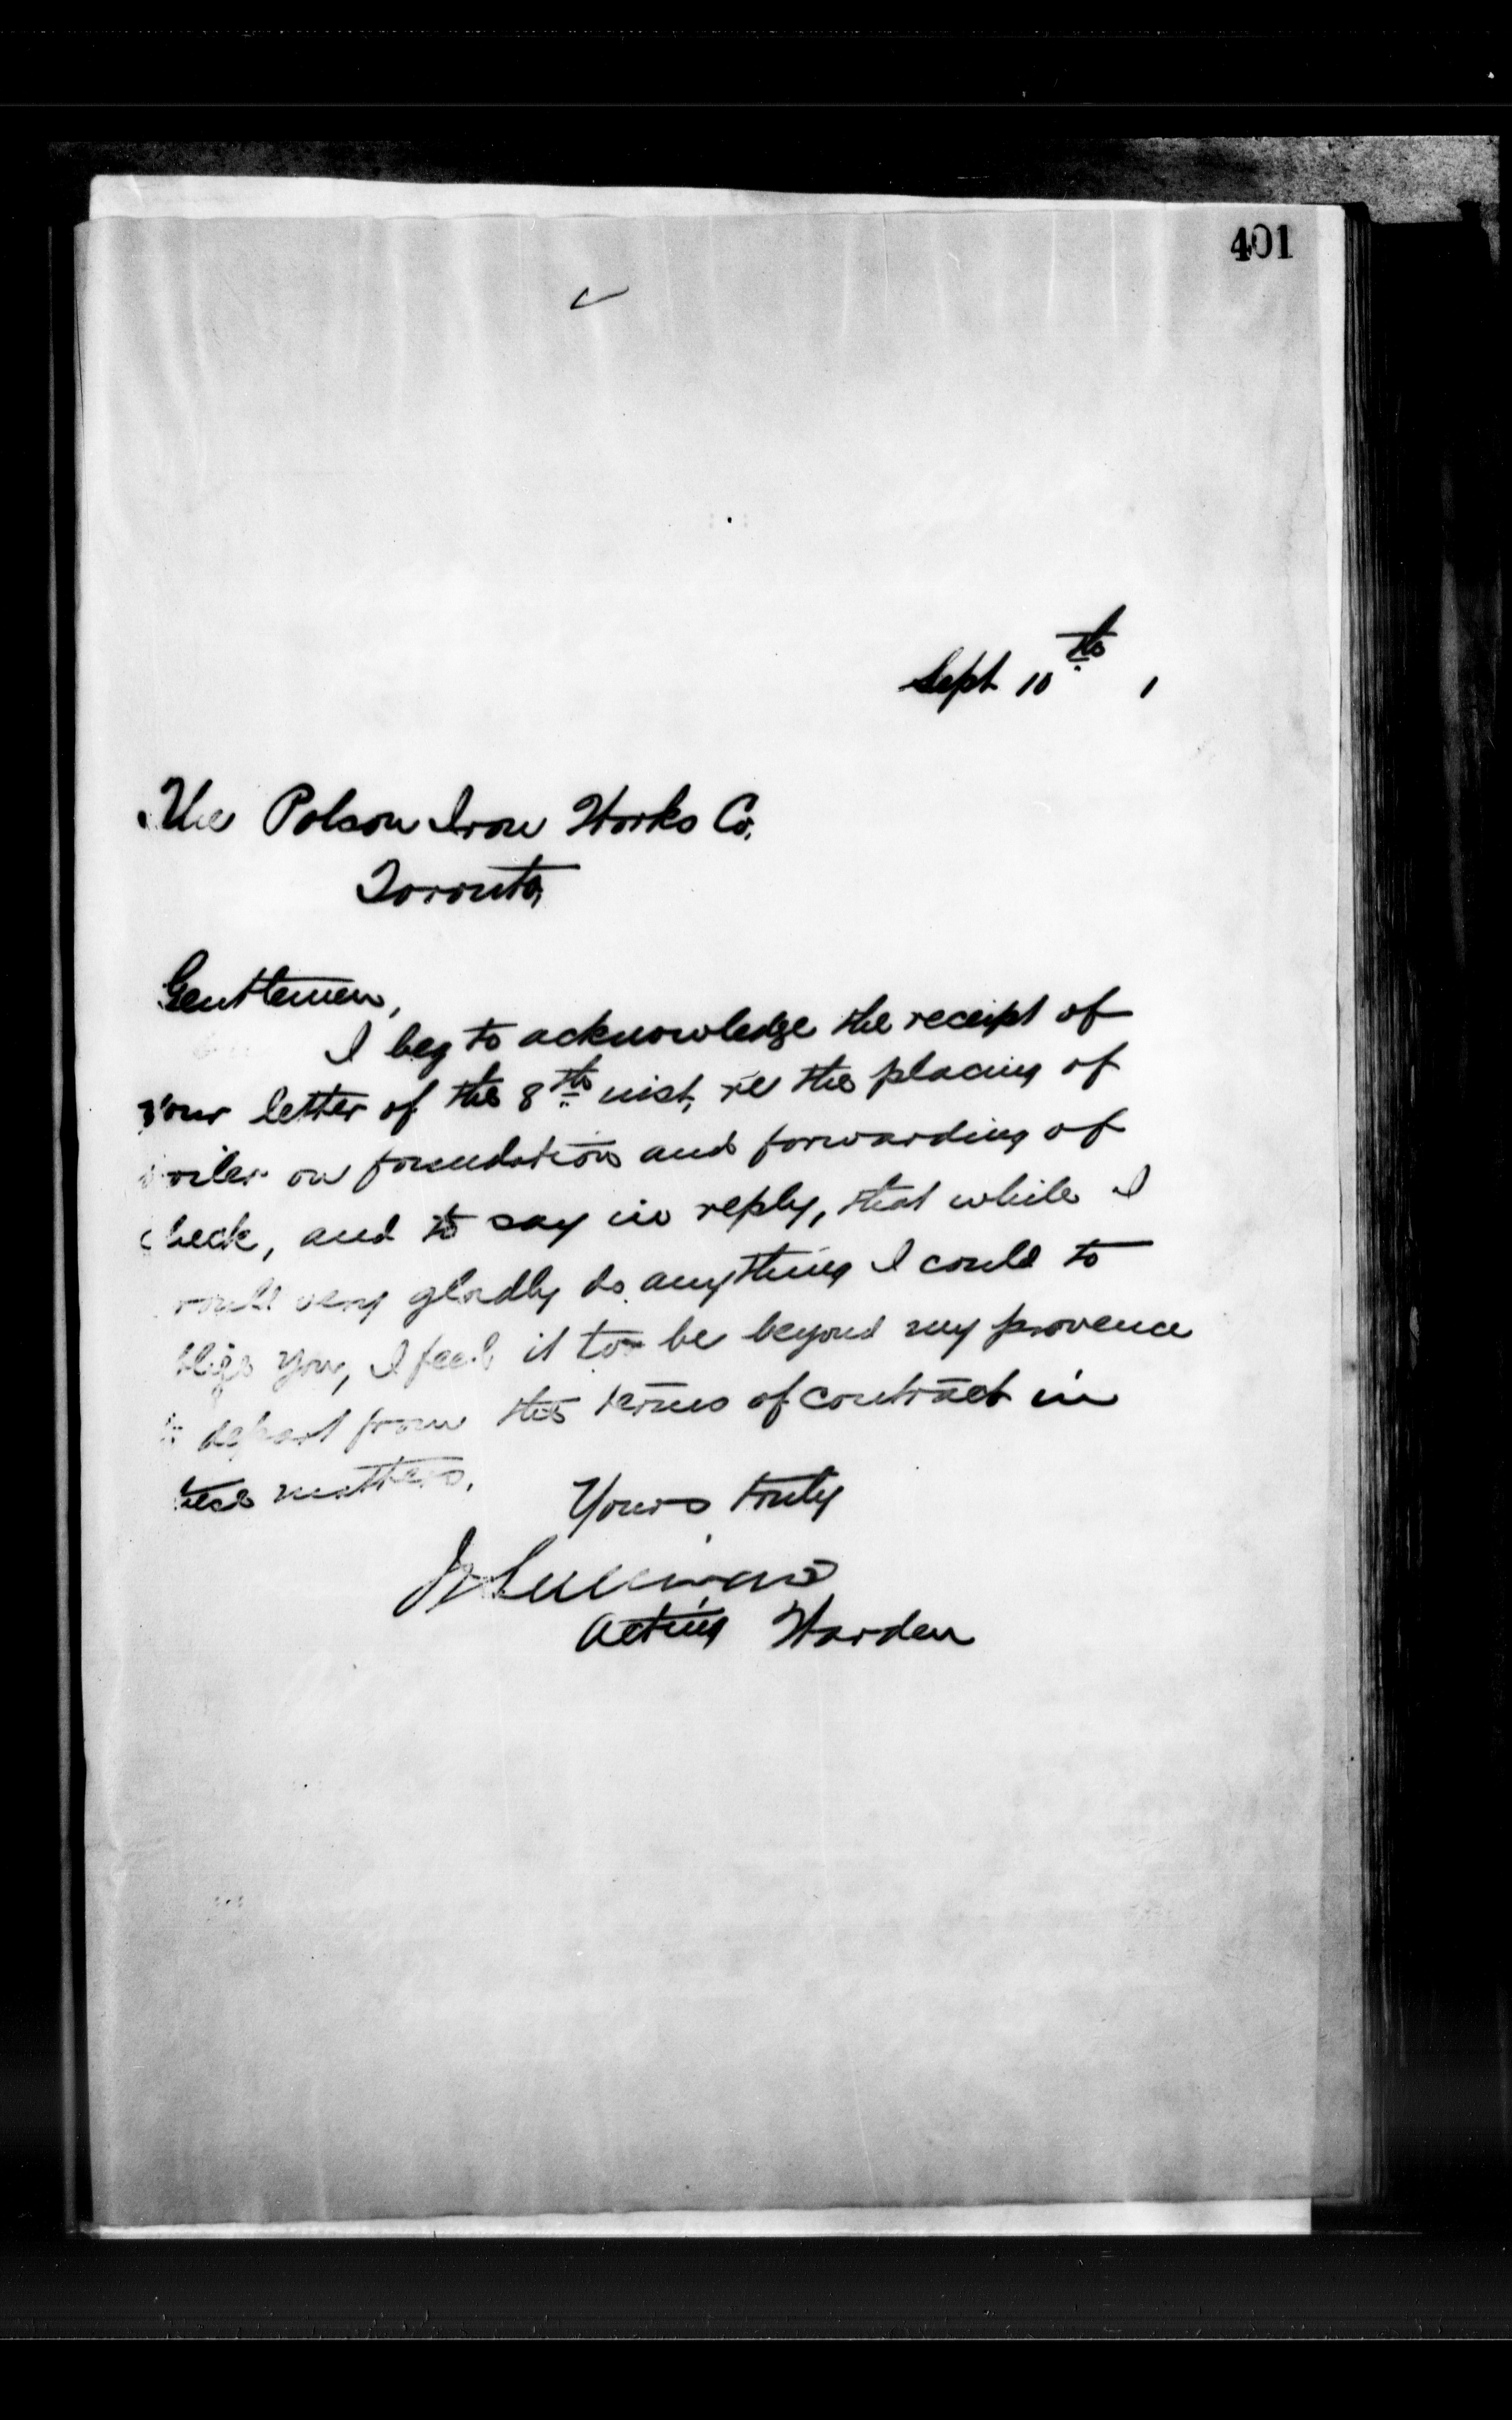 401
Sept 10th 1
The Polson Iron Works Co.
Toronto,
Gentlemen,
I beg to acknowledge the receipt of
your letter of the 8th inst, re the placing of
boiler on foundation and forwarding of
check, and to say in reply, that while I
would very gladly do anything I could to
oblige you, I feel it to be beyond my provence
to depart from the terms of contract in
these matters.
Yours truly
Sullivan
Acting Warden